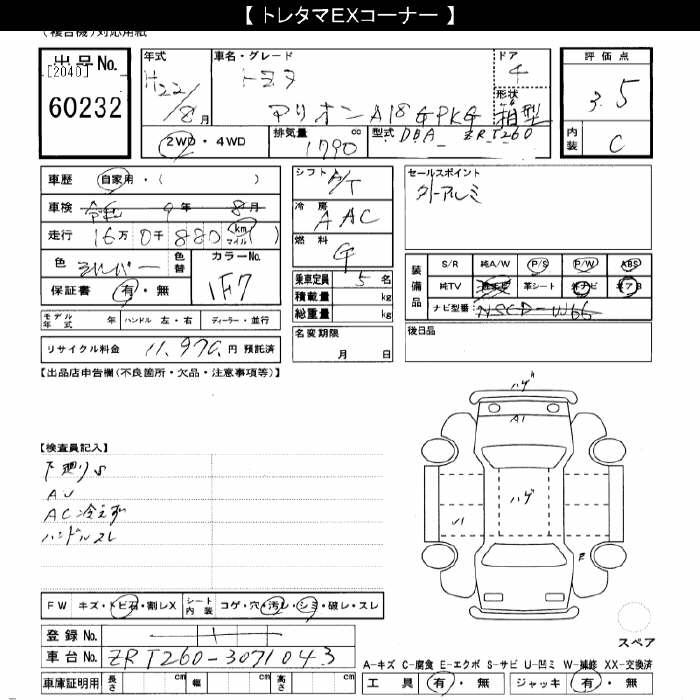 【 トレタマEXコーナー 】
(複合機)対応用紙
出品No.
[2040]
60232
年式
H22/8月
車名・グレード
トヨタ
アリオン A18 G PKG
ドア
4
形状
箱型
評価点
3.5
内装
C
2WD・4WD
排気量 1790 cc
型式 DBA_ZRT260
車歴 自家用・( )
車検 令和 9年 8月
走行 16万 0千 880 (km マイル)
色 シルバー
色替
カラーNo.
1F7
保証書 有・無
シフト
A/T
冷房
AAC
燃料
G
乗車定員 5 名
積載量 kg
総重量 kg
名変期限
月 日
セールスポイント
外アルミ
装備品
S/R 純A/W P/S P/W ABS
純TV 革シート 純ナビ エアB
ナビ型番 NSCD-W66
後日品
モデル年式 年 ハンドル 左・右 ディーラー・並行
リサイクル料金 11,970 円 預託済
【出品店申告欄(不良箇所・欠品・注意事項等)】
【検査員記入】
下廻りS
AU
AC冷えず
ハンドルスレ
ハゲ
A1
ハゲ
E
スペア
FW キズ・トビ石・割レX シート内装 コゲ・穴・汚レ・シミ・破レ・スレ
登録No.
車台No. ZRT260-3071043
車庫証明用 長さ cm 幅 cm 高さ cm
A-キズ C-腐食 E-エクボ S-サビ U-凹ミ W-補修 XX-交換済
工具 有・無 ジャッキ 有・無